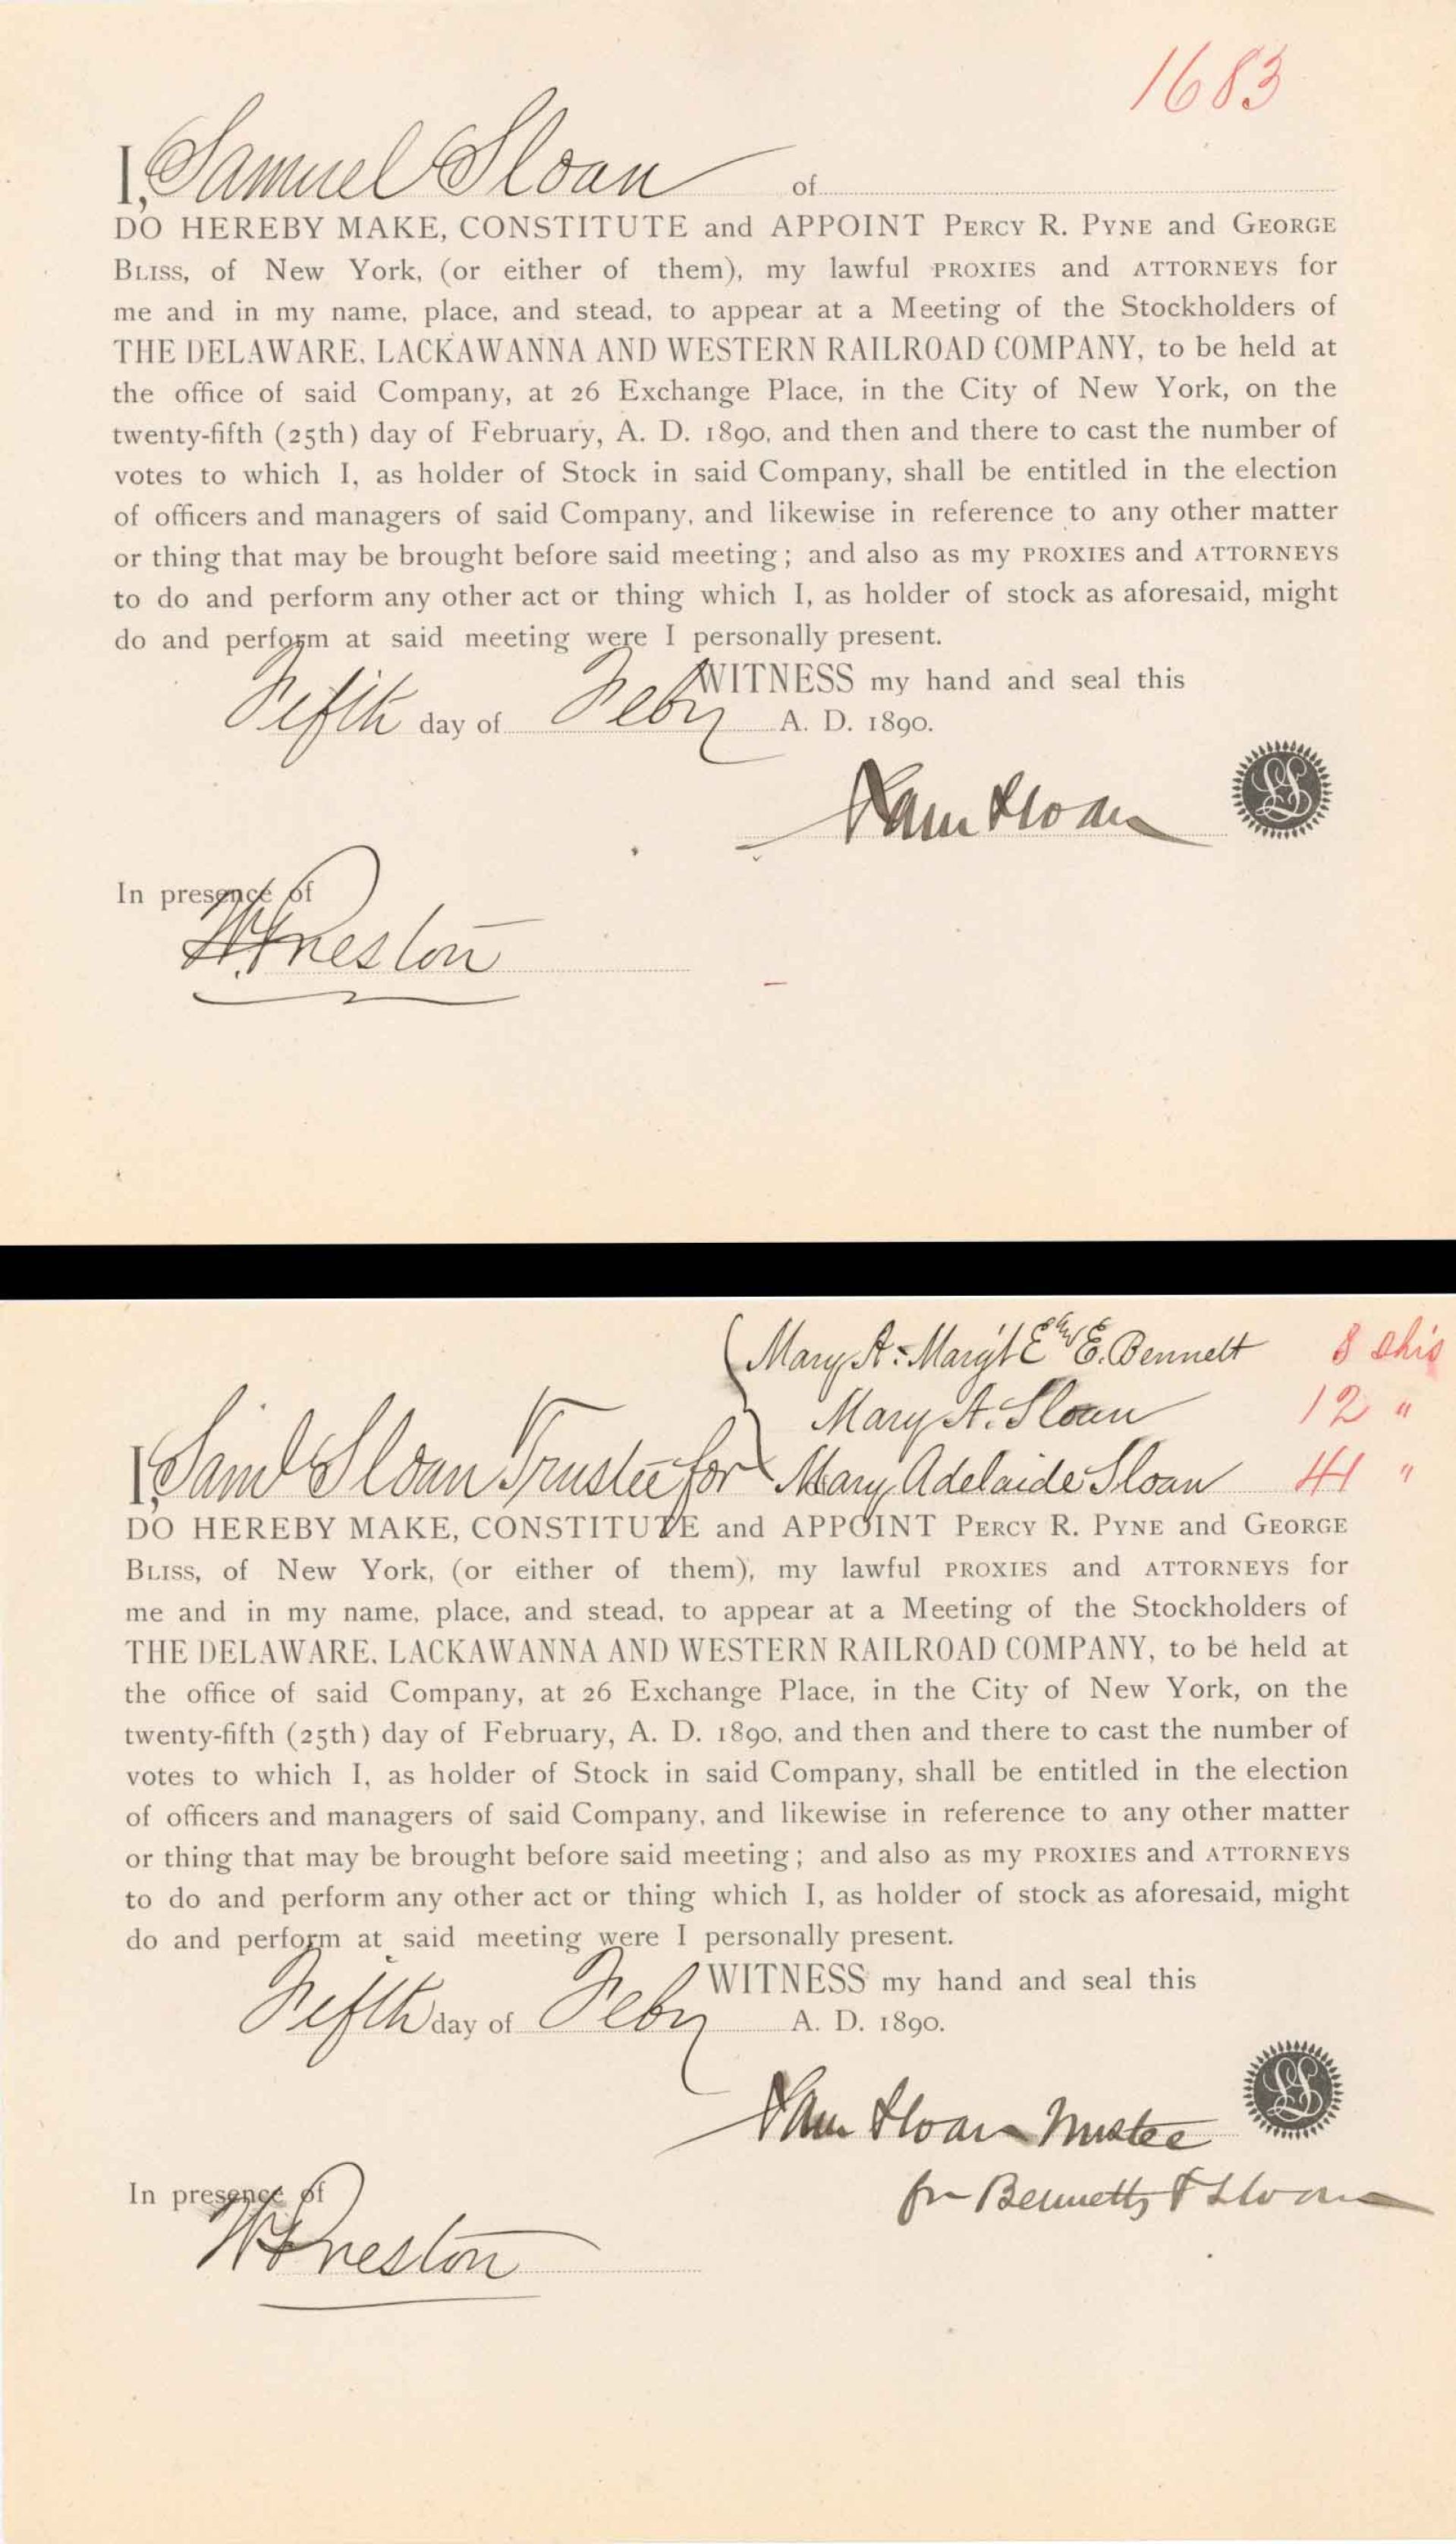 1683
I, Samuel Sloan of
DO HEREBY MAKE, CONSTITUTE and APPOINT PERCY R. PYNE and GEORGE
BLISS, of New York, (or either of them), my lawful PROXIES and ATTORNEYS for
me and in my name, place, and stead, to appear at a Meeting of the Stockholders of
THE DELAWARE, LACKAWANNA AND WESTERN RAILROAD COMPANY, to be held at
the office of said Company, at 26 Exchange Place, in the City of New York, on the
twenty-fifth (25th) day of February, A. D. 1890, and then and there to cast the number of
votes to which I, as holder of Stock in said Company, shall be entitled in the election
of officers and managers of said Company, and likewise in reference to any other matter
or thing that may be brought before said meeting; and also as my PROXIES and ATTORNEYS
to do and perform any other act or thing which I, as holder of stock as aforesaid, might
do and perform at said meeting were I personally present.
WITNESS my hand and seal this
Fifth day of Feby A. D. 1890.
Sam Sloan
LS
In presence of
Preston
Mary A. Margt E. E. Bennett 8 shs
Mary A. Sloan 12 "
I, Saml Sloan Trustee for Mary Adelaide Sloan 41 "
DO HEREBY MAKE, CONSTITUTE and APPOINT PERCY R. PYNE and GEORGE
BLISS, of New York, (or either of them), my lawful PROXIES and ATTORNEYS for
me and in my name, place, and stead, to appear at a Meeting of the Stockholders of
THE DELAWARE, LACKAWANNA AND WESTERN RAILROAD COMPANY, to be held at
the office of said Company, at 26 Exchange Place, in the City of New York, on the
twenty-fifth (25th) day of February, A. D. 1890, and then and there to cast the number of
votes to which I, as holder of Stock in said Company, shall be entitled in the election
of officers and managers of said Company, and likewise in reference to any other matter
or thing that may be brought before said meeting; and also as my PROXIES and ATTORNEYS
to do and perform any other act or thing which I, as holder of stock as aforesaid, might
do and perform at said meeting were I personally present.
WITNESS my hand and seal this
Fifth day of Feby A. D. 1890.
Sam Sloan Trustee
LS
for Bennetts & Sloan
In presence of
Preston